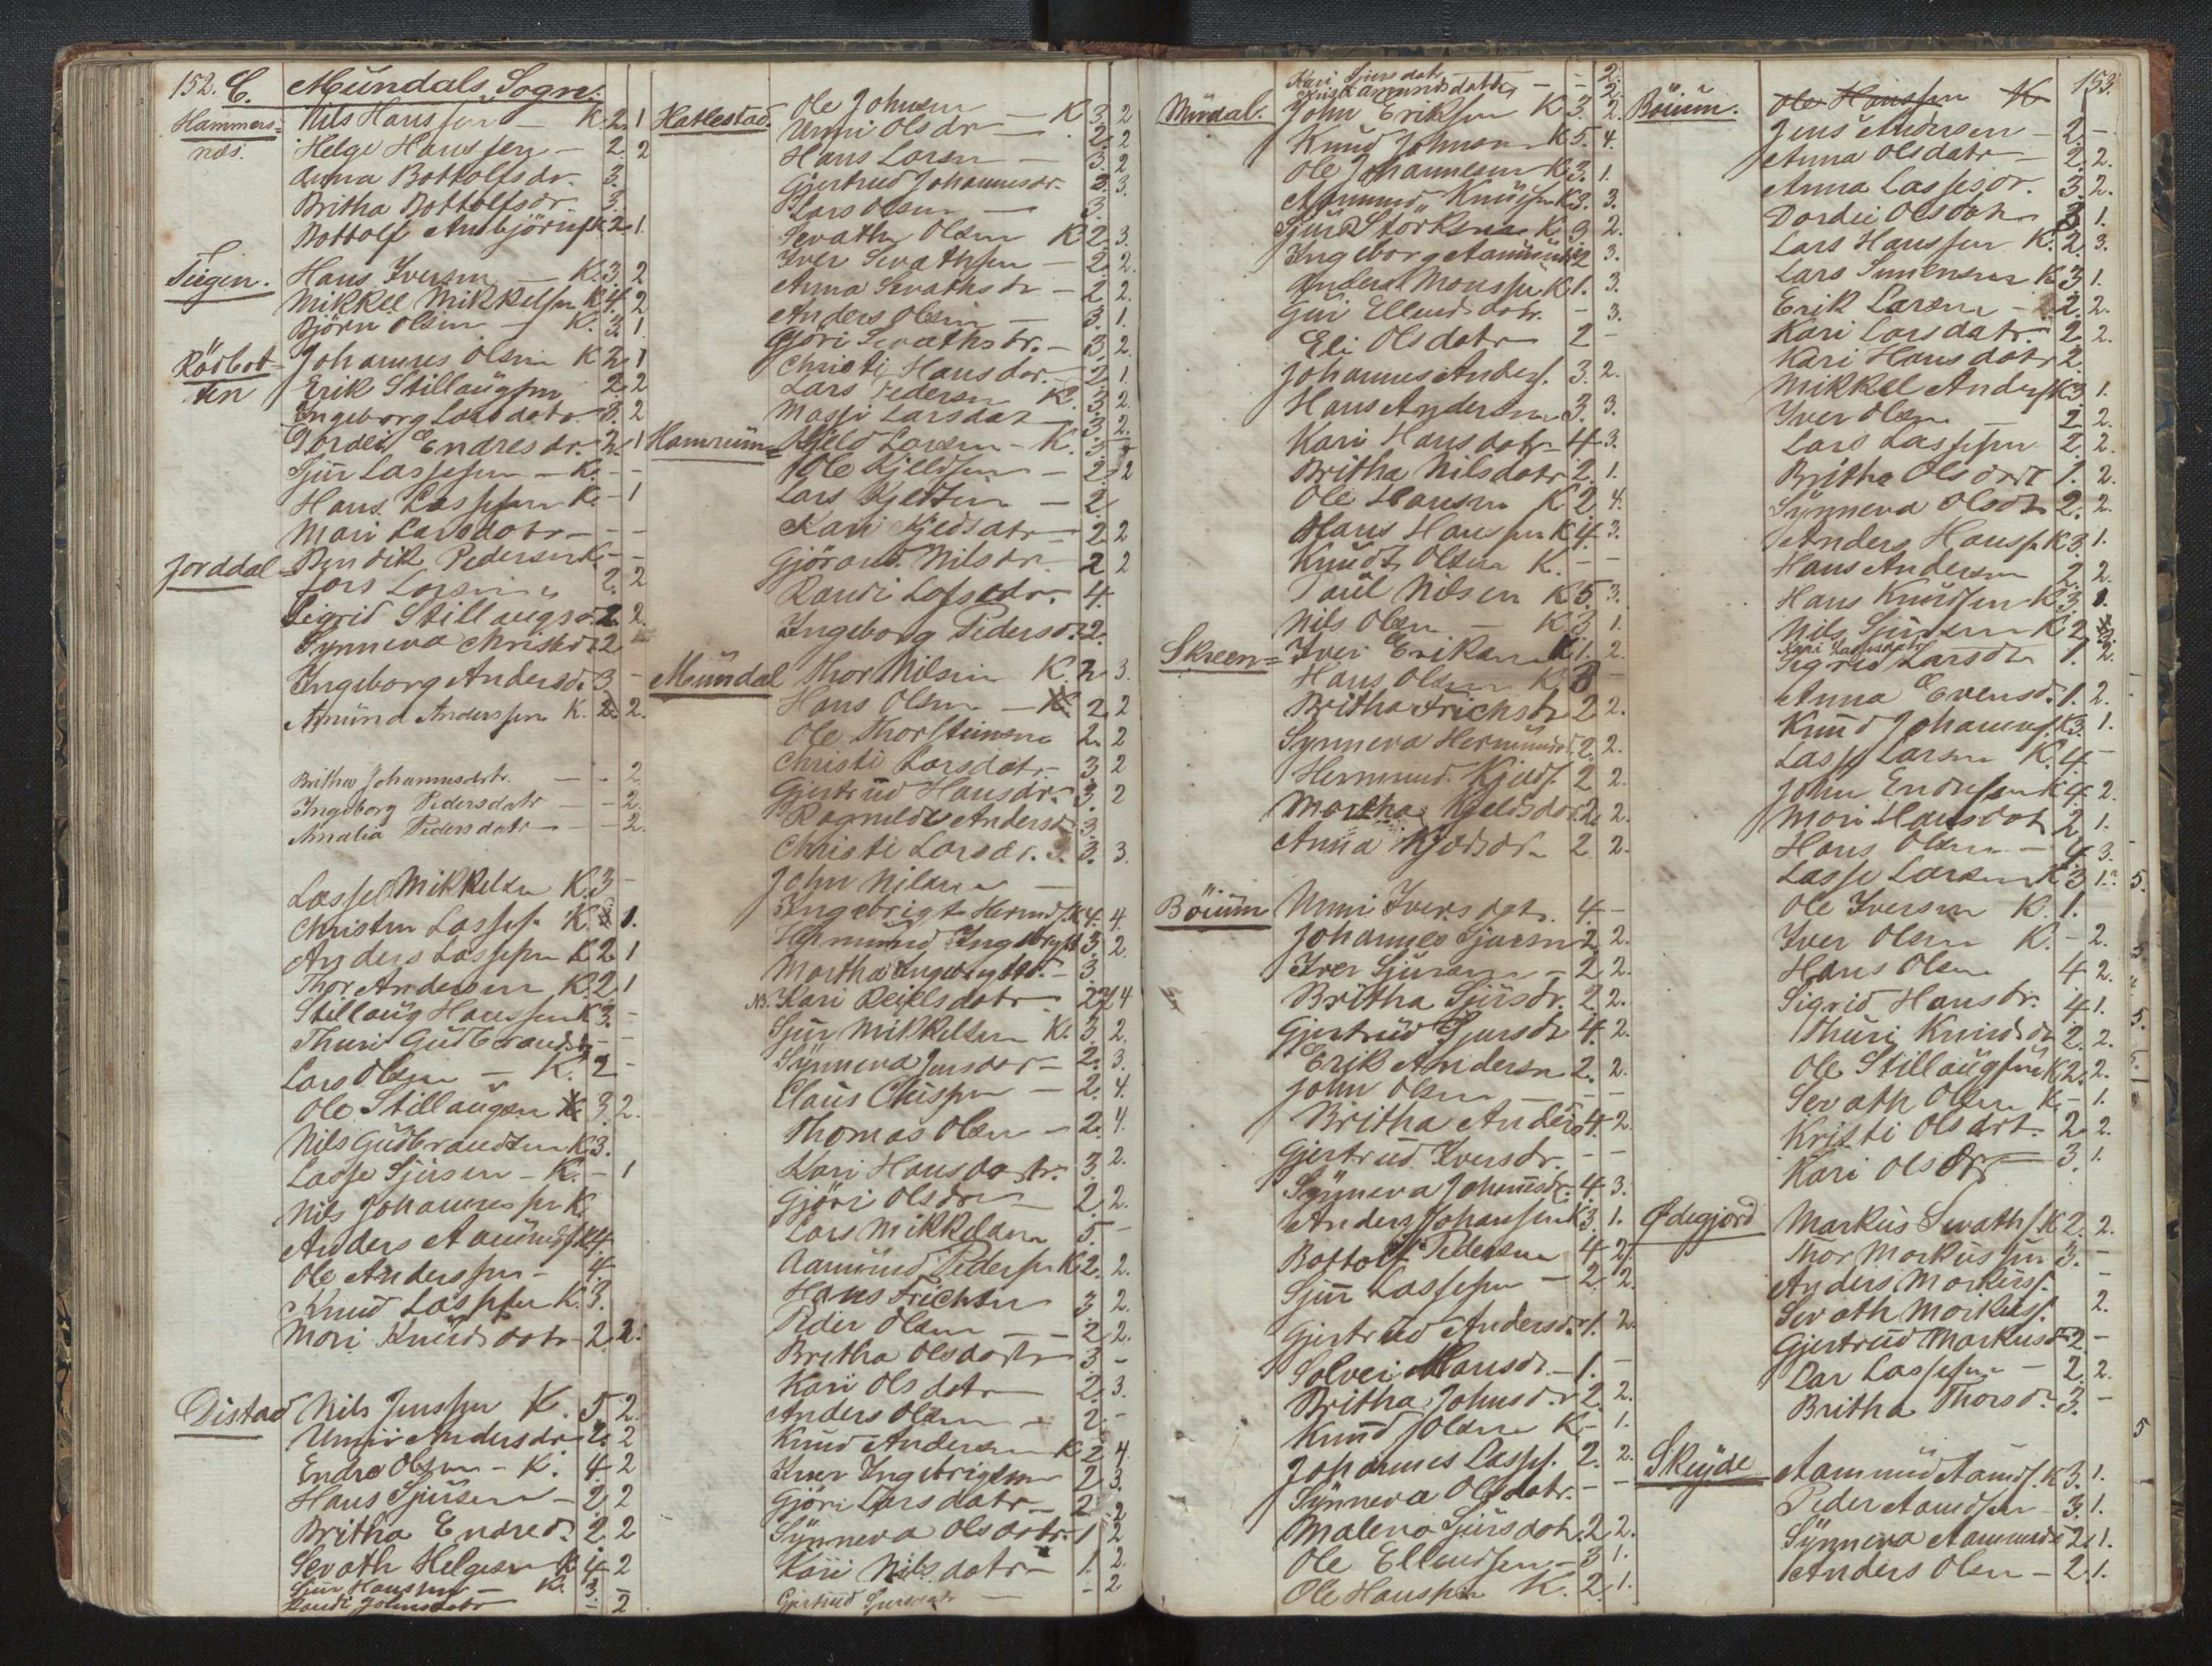 152. C. Mündals Sogn.
Hammers=
næs.
Nils Hanssen — K. 2. 1
Helge Hanssen — 2. 2
Anna Bottolfsdr. 3.
Britha Bottolfsdr. 3.
Bottolf Ambjörns. K. 2. 1.
Tügen. Hans Iversen — K. 3. 2
Mikkel Mikkelsen K. 4. 2
Björn Olsen — K. 3. 1.
Rödbot=
ten
Johannes Olsen K. 2. 1
Erik Stillaugsen 2. 2
Ingeborg Larsdatr. 3. 2
Dordei Endresdr. 2. 1
Sjur Lassesen — K. - -
Hans Lassesen K. - 1
Mari Larsdatr — - -
Jorddal= Bendik Pedersen K. - -
Lars Larsen 2. 2
Sigrid Stillaugsd. 2. 2.
Synneva Christ 2
Ingeborg Andersd. 3. -
Amünd Anderssen K. 2. 2.
Britha Johannesdatr. — - 2.
Ingeborg Pedersdatr — - 2.
Amalia Pedersdatr — - 2.
Lasse Mikkelsen K. 3 -
Christen Lasses. K. 3 1.
Anders Lassesen K. 2 1
Thor Andersen K. 2. 1
Stillaüg Hanssen K. 3. -
Thuri Gudbrandsd. - -
Lars Olsen — K. 2 -
Ole Stillaügsen K. 3. 2.
Nils Güdbrandsen K. 3.
Lasse Sjürsen — K. - 1
Nils Johannessen K.
Anders Aamünds. K. 4.
Ole Anderssen — 4.
Knud Lassesen K. 3.
Mari Knüdsdatr 2. 2.
Distad Nils Jenssen K. 5 2.
Unni Andersdr. 2. 2
Endre Olsen — K. 4. 2
Hans Sjürsen — 2. 2
Britha Endresd. 2. 2
Sevath Helgesen K. 4 2
Sjur Hanssen — K. 3. -
Randi Johnsdatr - 2
Hatlestad. Ole Johnsen — K. 3. 2
Unni Olsdr — 2. 2
Hans Larsen — 3. 2
Gjertrud Johannesdr. 3. 3.
Lars Olsen — 3.
Sevath Olsen K. 2. 3.
Iver Sevathsen — 2. 2.
Anna Sevathsdr — 2 2.
Anders Olsen — 3. 1.
Gjöri Sevathsdr. — 3. 2.
Christi Hansdtr. — 2. 1.
Lars Pedersen K. 3 2.
Massi Larsdatr 3. 2.
Hamrüm= Kjeld Larsen — K. 3. -
Ole Kjeldsen — 2. 2
Lars Kjeldsen — 2.
Kari Kjeldsdatr 2 2
Gjörand Nilsdr. 2 2
Randi Lassedr. 4.
Ingeborg Pedersd. 2.
Mündal Thor Nilsen K. 2. 3.
Hans Olsen — K. 2. 2
Ole Thorsteinsen 2. 2
Christi Larsdatr. 3. 2
Gjertrüd Hansdr. 3. 2
Ragnilde Andersd. 3.
Christi Larsdr. 3. 3.
John Nilsen —
Ingebrigt Hermds. K. 4. 4.
Hermünd Ingebrigts. 3. 2
Martha Ingebrigtsd. — 3
NB. Kari Reielsdatr 2 4
Sjur Mikkelsen K. 3. 2.
Synneva Jensdtr — 2. 3.
Claüs Clüssen — 2. 4.
Thomas Olsen — 2. 4.
Kari Hansdatr. 3. 2.
Gjöri Olsdr. 2 2.
Lars Mikkelsen 5. -
Aamünd Pedersen K. 2. 2.
Hans Erichsen 3 2.
Peder Olsen — 2 2.
Britha Olsdatr 3 -
Kari Olsdatr 2. 3.
Anders Olsen — 2. -
Knud Andersen K. 2 4.
Iver Ingebrigtsen 2 3.
Gjöri Larsdatr — 2 2
Synneva Olsdatr. 1 2
Kari Nilsdatr — 1. 2.
Gjertrud Sjursdatr — - 2
Kari Sjursdatr — - 2.
Amundsdatter — - 2.
Mündal. John Eriksen K. 3. 2.
Knud Johnsen K. 5. 4.
Ole Johannesen K. 3. 1.
Aamund Knüdsen K. 3. 3.
Sjur Storksen K. 3 2.
Ingeborg Aamünds 2 3.
Anders Monssen K. 1. 3.
Guri Ellendsdatr. - 3.
Eli Olsdatr 2 -
Johannes Anders. 3. 2.
Hans Andersen 3. 3.
Kari Hansdatr 4 3.
Britha Nilsdatr 2. 1.
Ole Hansen K. 2 4.
Hans Hanssen K. 4. 3.
Knudt Olsen K. - -
Paül Nilsen K. 5. 3.
Nils Olsen — K. 3 1.
Skreen= Iver Eriksen K. 1. 2.
Hans Olsen K. 3 -
Britha Erichsdr 2 2.
Synneva Hermünds. 2. 2.
Hermund Kjelds. 2 2.
Martha Kjeldsdatr 2. 2.
Anna Kjeldsdr. 2. 2.
Böiüm Unni Iversdatr. 4. -
Johannes Sjursen 2. 2.
Iver Sjürsen — 2 2.
Britha Sjürsdr. 2. 2.
Gjertrüd Sjursdr 4. 2.
Erik Andersen 2. 2.
John Olsen — - -
Britha Anders 4. 2.
Gjertrud Iversdr. - -
Synneva Johansdr. 4. 3.
Anders Johansen K. 3. 1.
Bottolf Pedersen 4. 2.
Sjur Lassesen — 2. 2.
Gjertrüd Andersdr. 1. 2.
Solvei Hansdr — 1. -
Britha Johnsdr 2. 2.
Knud Olsen K. - 1.
Johannes Lasses. 2. 2.
Synneva Olsdatr. - -
Malena Sjürsdatr. 2 2.
Ole Ellendsen — 3 1.
Ole Hanssen K. 2. 1.
153.
Böiüm. Ole Hanssen K
Jens Andersen — 2. -
Anna Olsdatr — 2. 2.
Anna Lassesdr. 3. 2.
Dordei Olsdatr 3 1.
Lars Hanssen K. 2. 3.
Lars Simensen K. 3 1.
Erik Larsen — 2. 2.
Kari Larsdatr. 2 2.
Kari Hansdatr 2.
Mikkel Anders. K. 3 1.
Iver Olsen 2 2.
Lars Lassesen 2. 2.
Britha Olsdatr 1. 2.
Synneva Olsdr 2. 2.
Anders Hanss. K. 3. 1.
Hans Andersen 2. 2.
Hans Knüdsen K. 3. 1.
Nils Sjürsen K. 2.
Kari Lassesdatr
Sigrid Larsdr 1. 2.
Anna Evensd. 1. 2.
Knud Johannes. K. 3. 1.
Lasse Larsen K. 4 -
John Endresen K. 4. 2.
Mari Hansdatr 2 1.
Hans Olsen — 4 3.
Lasse Larsen K. 3 1. 5.
Ole Iversen K. 1.
Iver Olsen K. - 2.
Hans Olsen 4 2.
Sigrid Hansdr. 4 1.
Thuri Knudsdr 2. 2.
Ole Stillaugsen K. 2. 2.
Sevath Olsen K. - 1.
Kristi Olsdtr. 2 2.
Kari Olsdr — 3. 1.
Ødegjord Markus Sevaths. K. 2. 2.
Thor Markussen 3. -
Anders Markuss. -
Sevath Markuss. 2.
Gjertrud Markusd. 2. -
Lar Lassesen — 2. 2.
Britha Thorsdr. 3. -
Skeijde Aamund Aamds. K. 3 1.
Peder Aamdsen — 3. 1.
Synneva Aamunds 2. 1.
Anders Olsen — 2. 1.